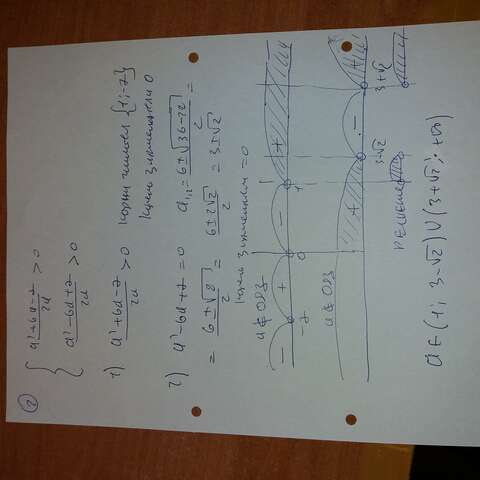 ②
{ (a² + 6a - 7)/2a > 0
{ (a² - 6a + 7)/2a > 0
1) (a² + 6a - 7)/2a > 0 корни числителя {1; -7}
корень знаменателя 0
2) a² - 6a + 7 = 0 a₁,₂ = (6 ± √(36 - 28))/2 =
= (6 ± √8)/2 = (6 ± 2√2)/2 = 3 ± √2
корень знаменателя = 0
a ∉ ОДЗ
- + - +
-7 0 1
a ∉ ОДЗ
+ - +
3-√2 3+√2
РЕШЕНИЕ
a ∈ (1; 3-√2) ∪ (3+√2; +∞)